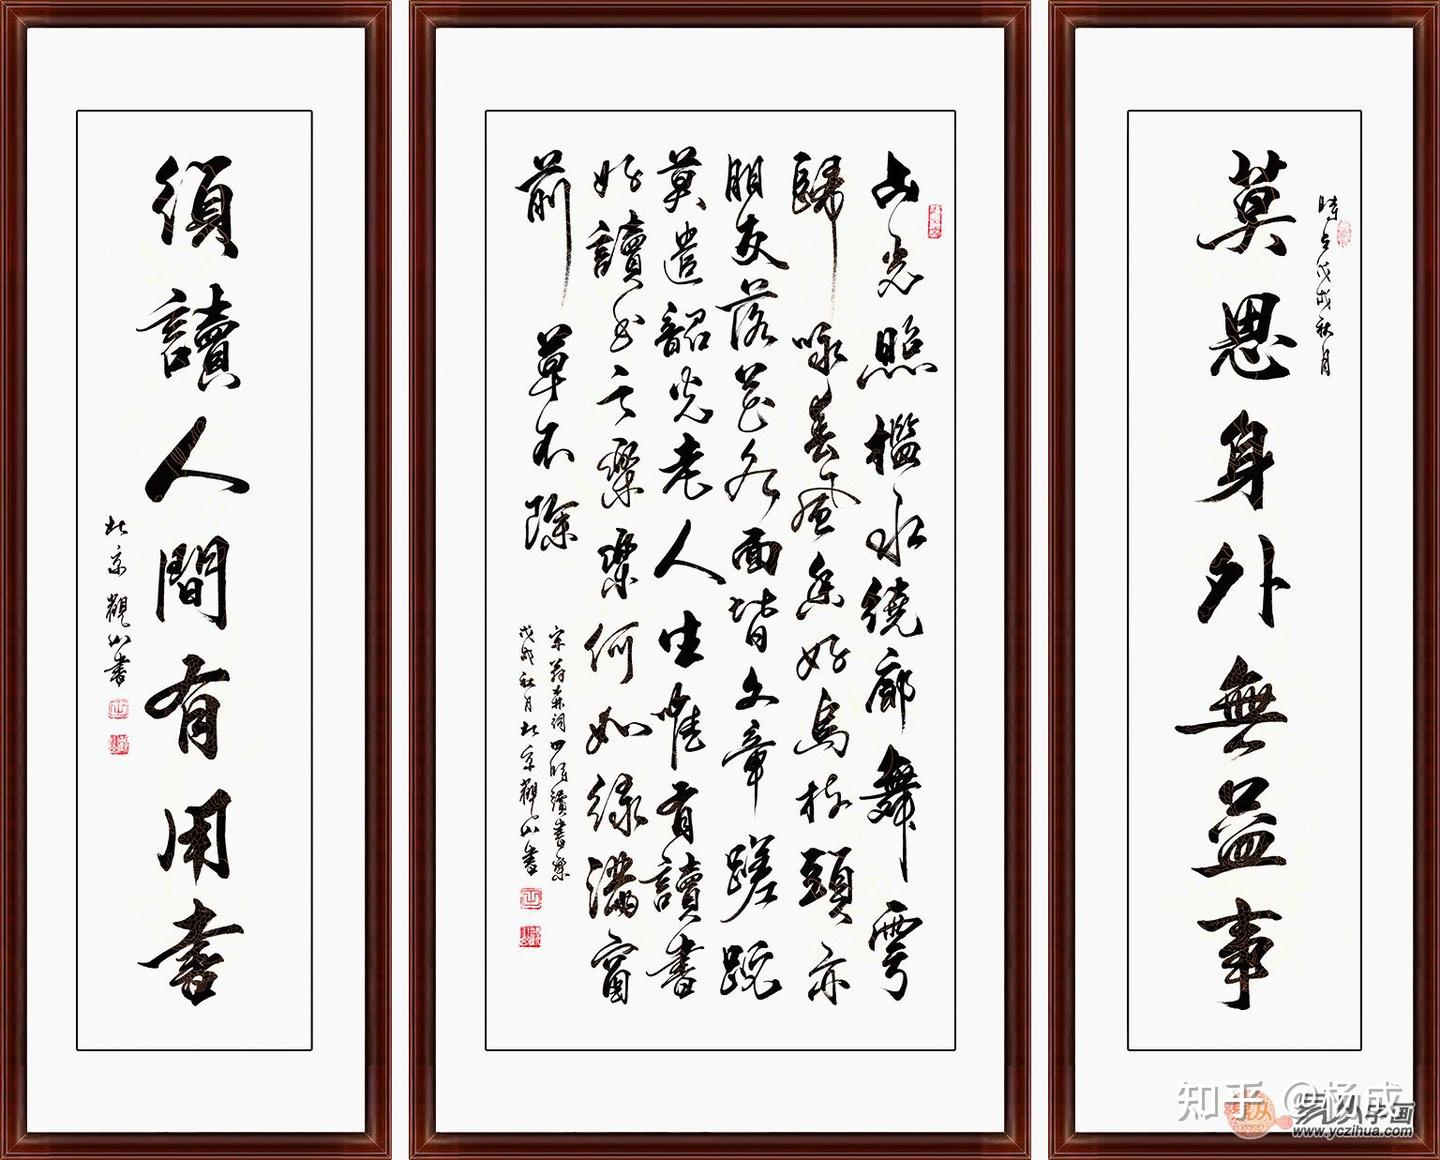 莫思身外無益事
時在戊戌秋月
山光照檻水繞廊舞雩
歸咏春風香好鳥枝頭亦
朋友落花水面皆文章蹉跎
莫遣韶光老人生惟有讀書
好讀書之樂樂何如綠滿窗
前草不除
宋翁森詞四時讀書樂
戊戌秋月北京觀山書
須讀人間有用書
北京觀山書
知乎 @杨成
易从字画
www.yczihua.com